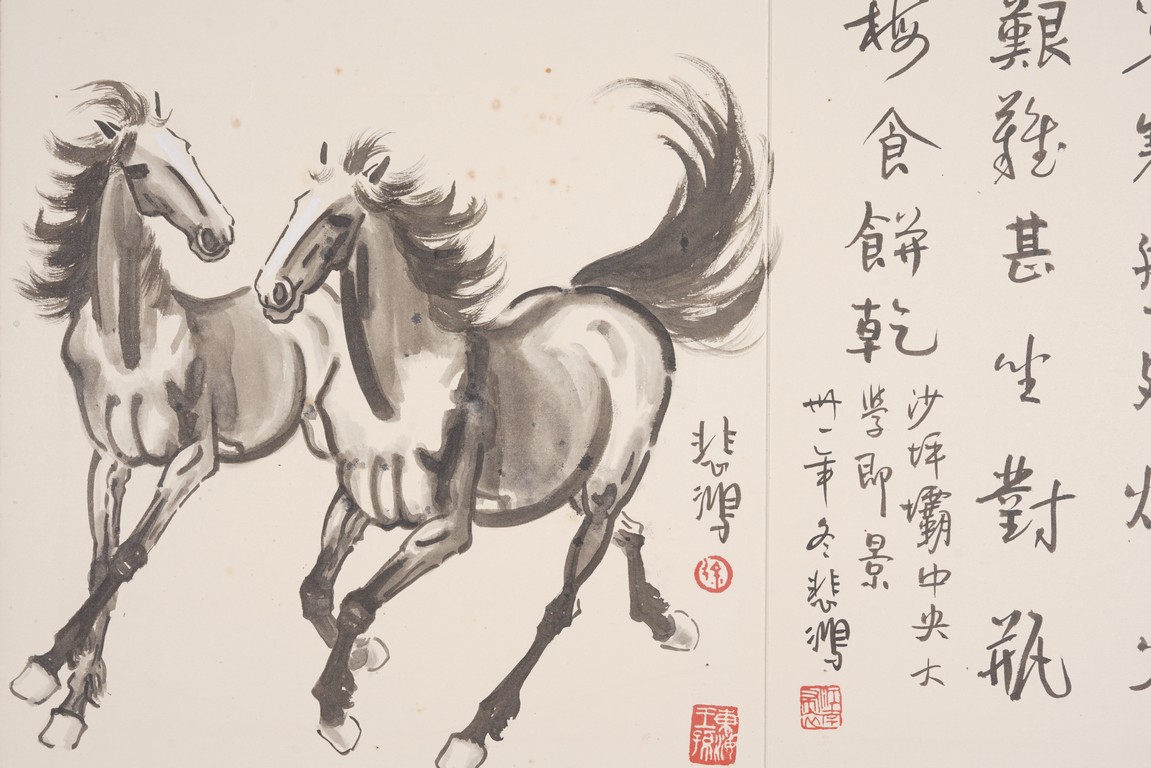 艱難甚坐對瓶
梅食餅乾
沙坪壩中央大
學即景
卅一年冬悲鴻
悲鴻
徐
東海王孫